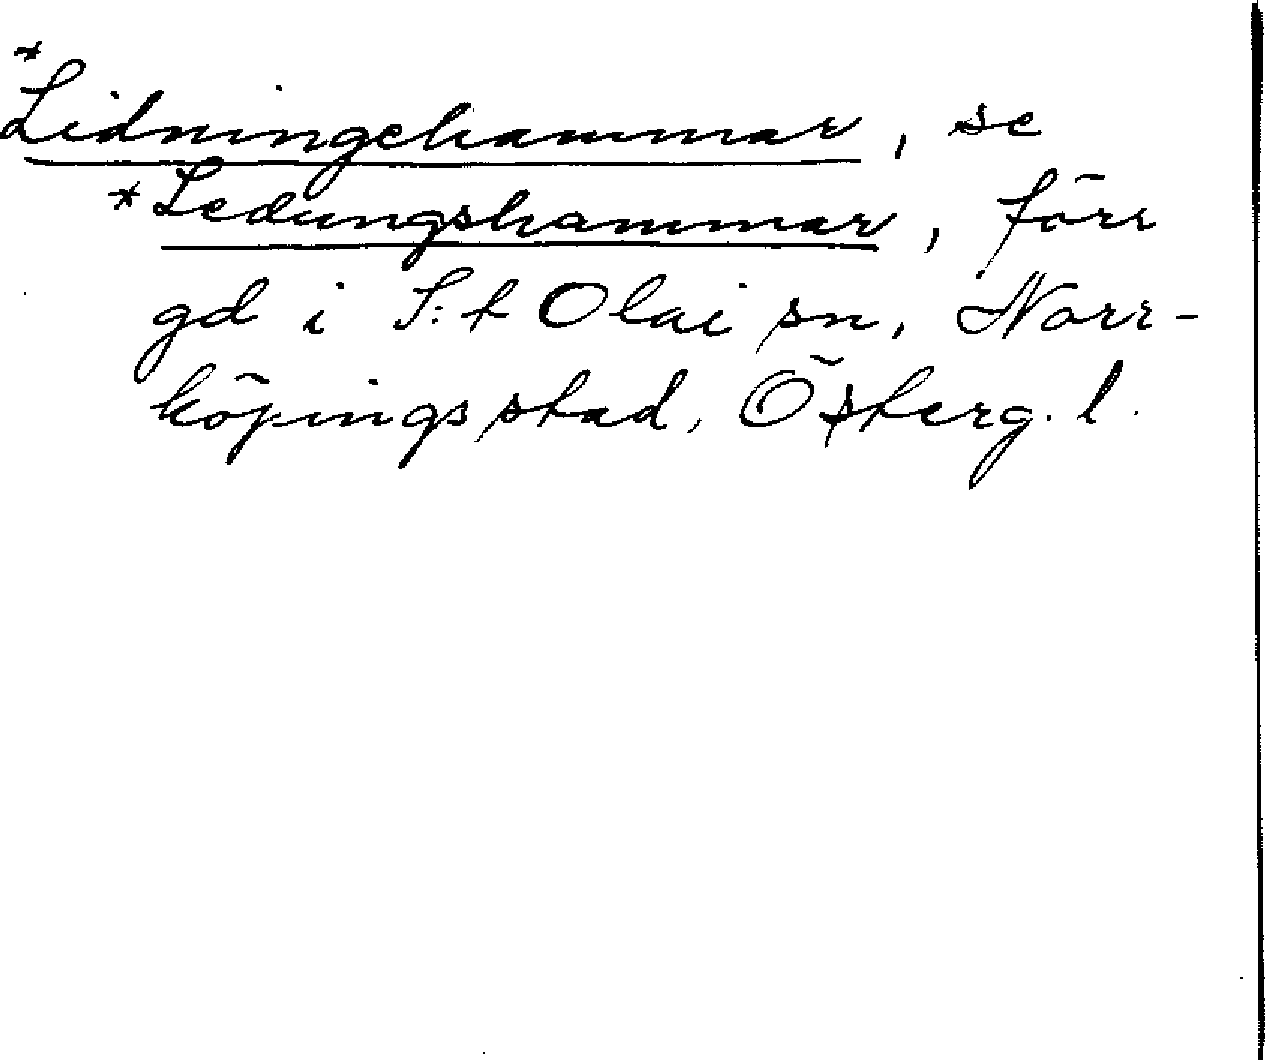 *Lidningehammar, se
*Ledungshammar, förr
gd i S:t Olai sn, Norr-
köpings stad, Österg. l.